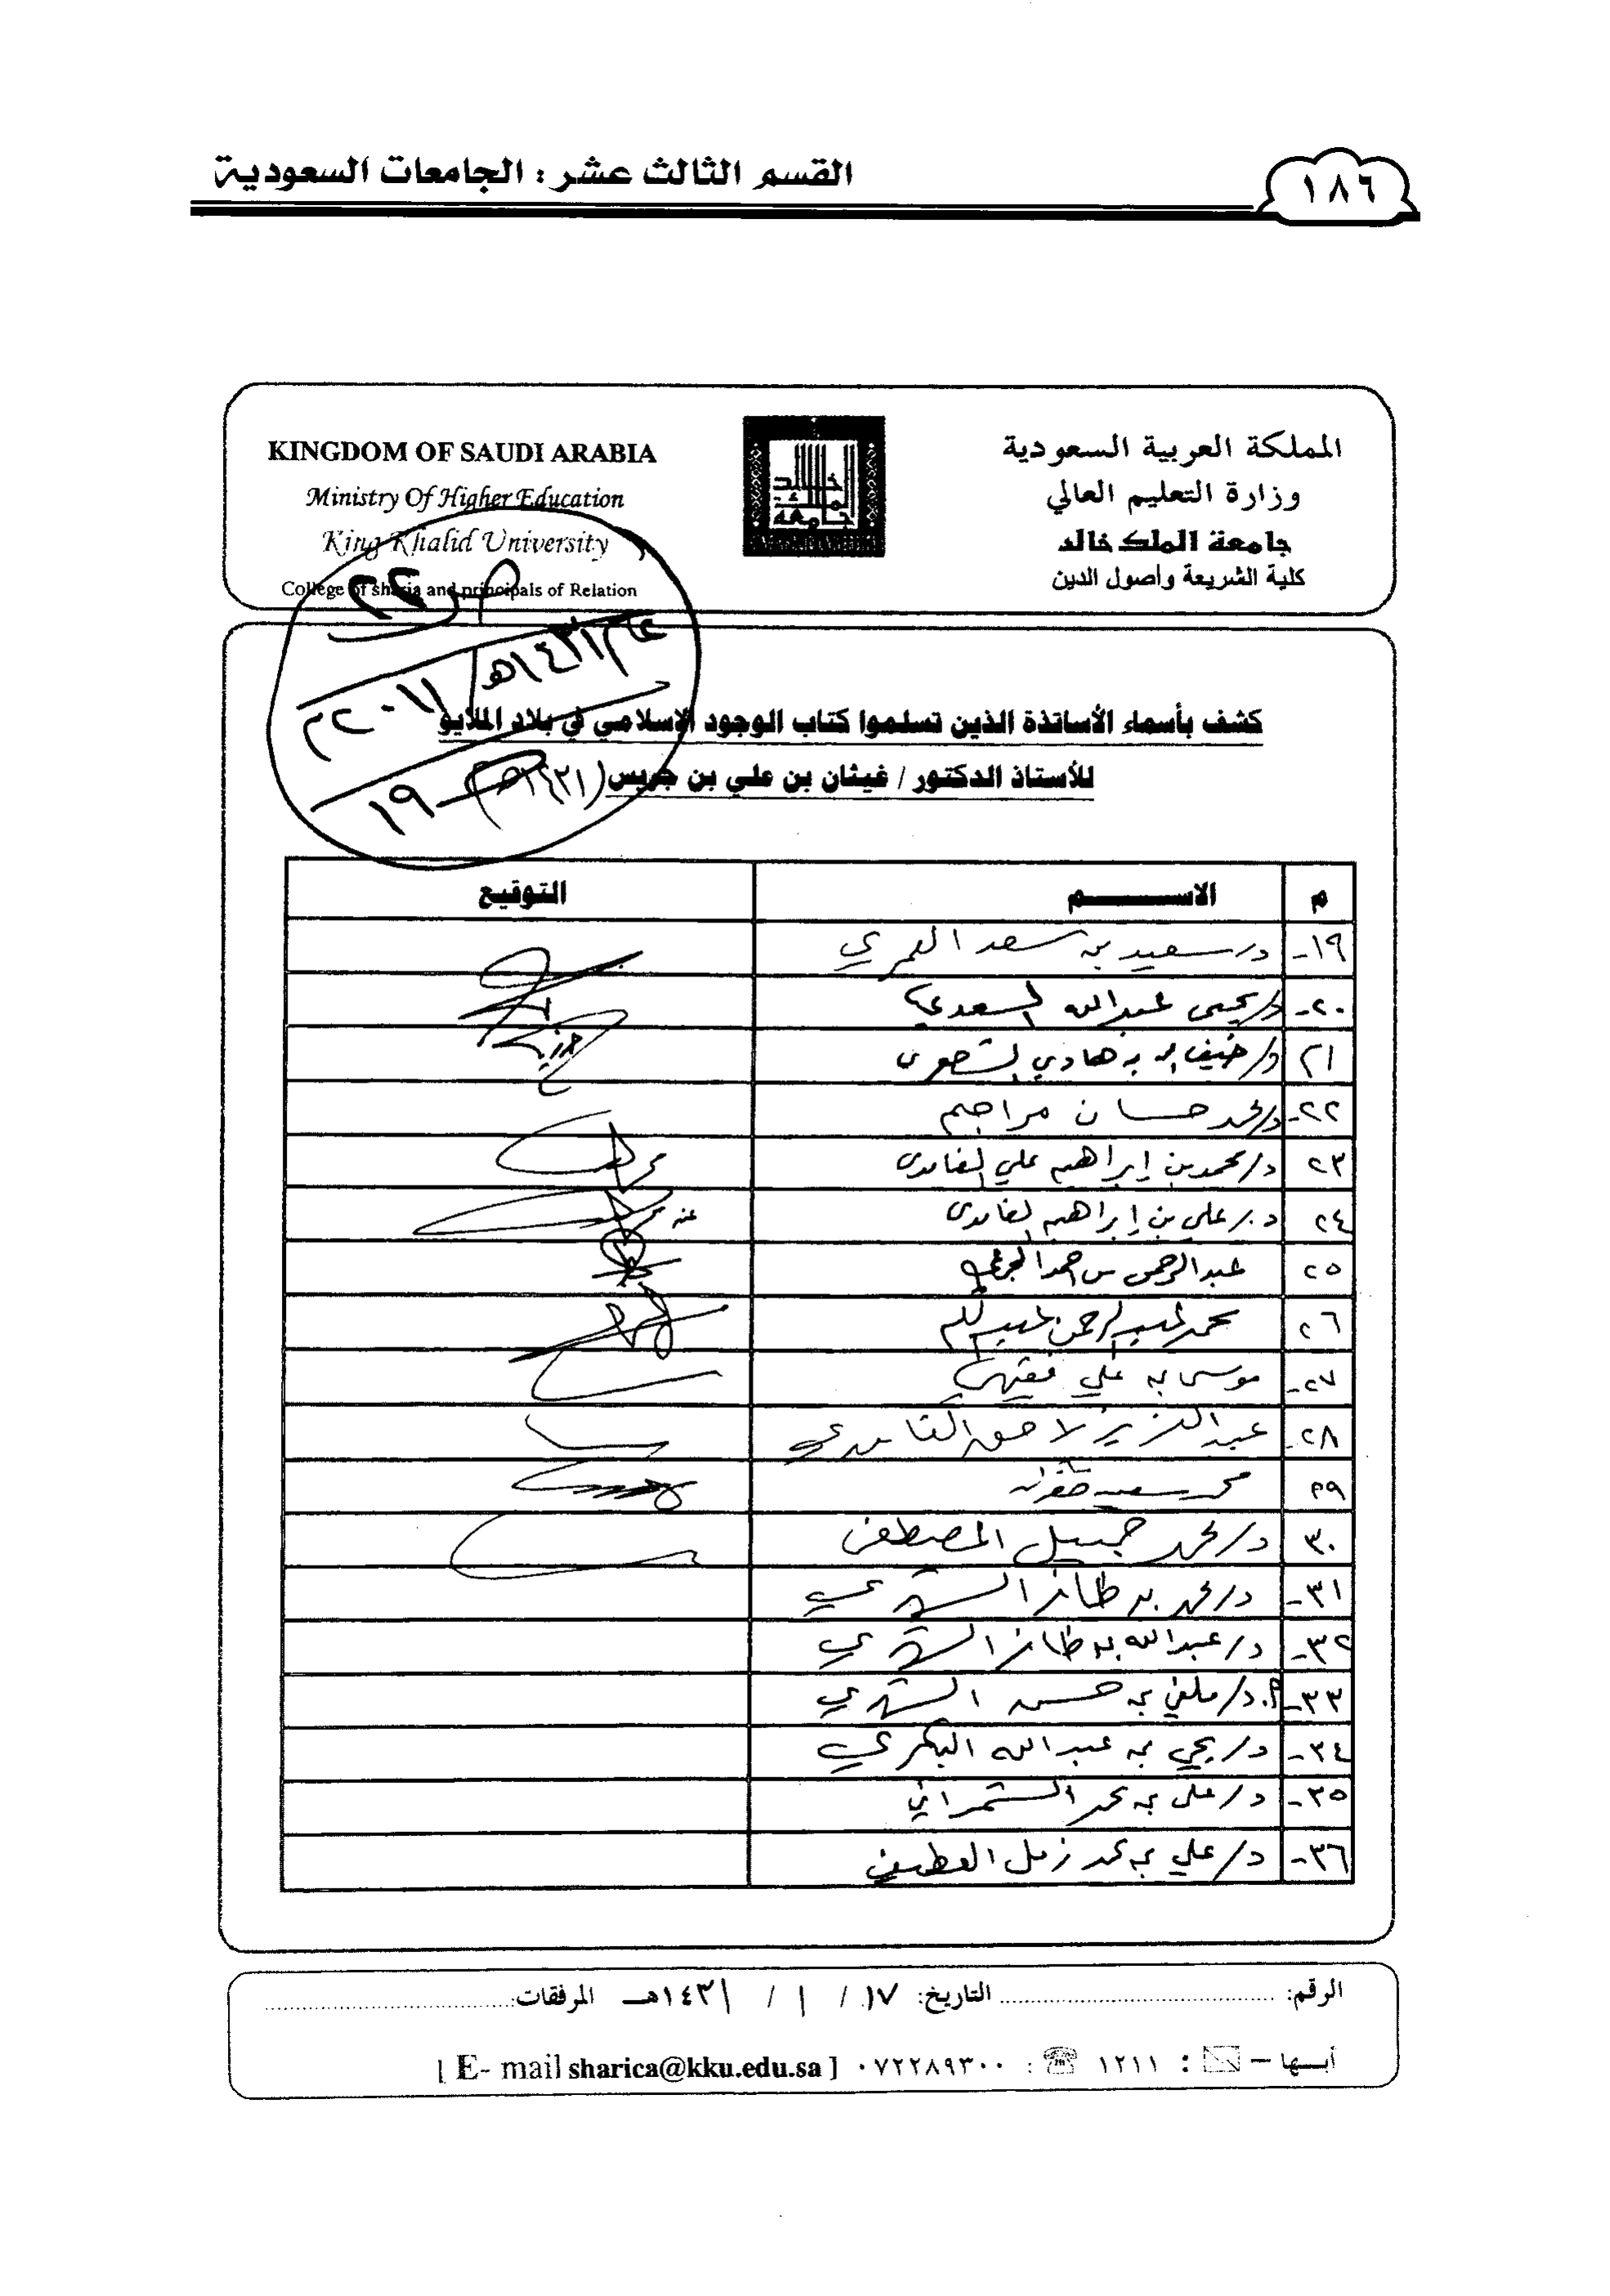 القسم الثالث عشر : الجامعات السعودية
١٨٦
المملكة العربية السعودية
وزارة التعليم العالي
جامعة الملك خالد
كلية الشريعة وأصول الدين
KINGDOM OF SAUDI ARABIA
Ministry Of Higher Education
King Khalid University
College of sharia and principals of Relation
كشف بأسماء الأساتذة الذين تسلموا كتاب الوجود الإسلامي في بلاد الملايو
للأستاذ الدكتور / غيثان بن علي بن جريس
م الاســـــــم التوقيع
١٩- د/ سعيد بن سعد العمري
٢٠- د/ يحيى عبدالله السعدي
٢١ د/ ضيف الله بن هادي الشمري
٢٢- د/ محمد حسان
٢٣ د/ محمد بن إبراهيم علي الغامدي
٢٤ د/ علي بن إبراهيم الغامدي
٢٥ عبدالرحمن بن أحمد الجرعي
٢٦ محمد عبدالرحمن
٢٧- موسى بن علي فقيهي
٢٨- عبدالعزيز لاحق الغامدي
٢٩ محمد سعيد
٣٠ د/ محمد جميل المصطفى
٣١- د/ محمد بن ظافر الشهري
٣٢- د/ عبدالله بن ظافر الشهري
٣٣- أ.د/ ملفي بن حسن الشهري
٣٤- د/ يحيى بن عبدالله البكري
٣٥- د/ علي بن محمد الشمراني
٣٦- د/ علي بن محمد زميل العطيف
الرقم: التاريخ: ١٧ / ١ / ١٤٣١هـ المرفقات:
أبــها – : ١٢١١ : ٠٧٢٢٨٩٣٠٠ [ E- mail sharica@kku.edu.sa ]